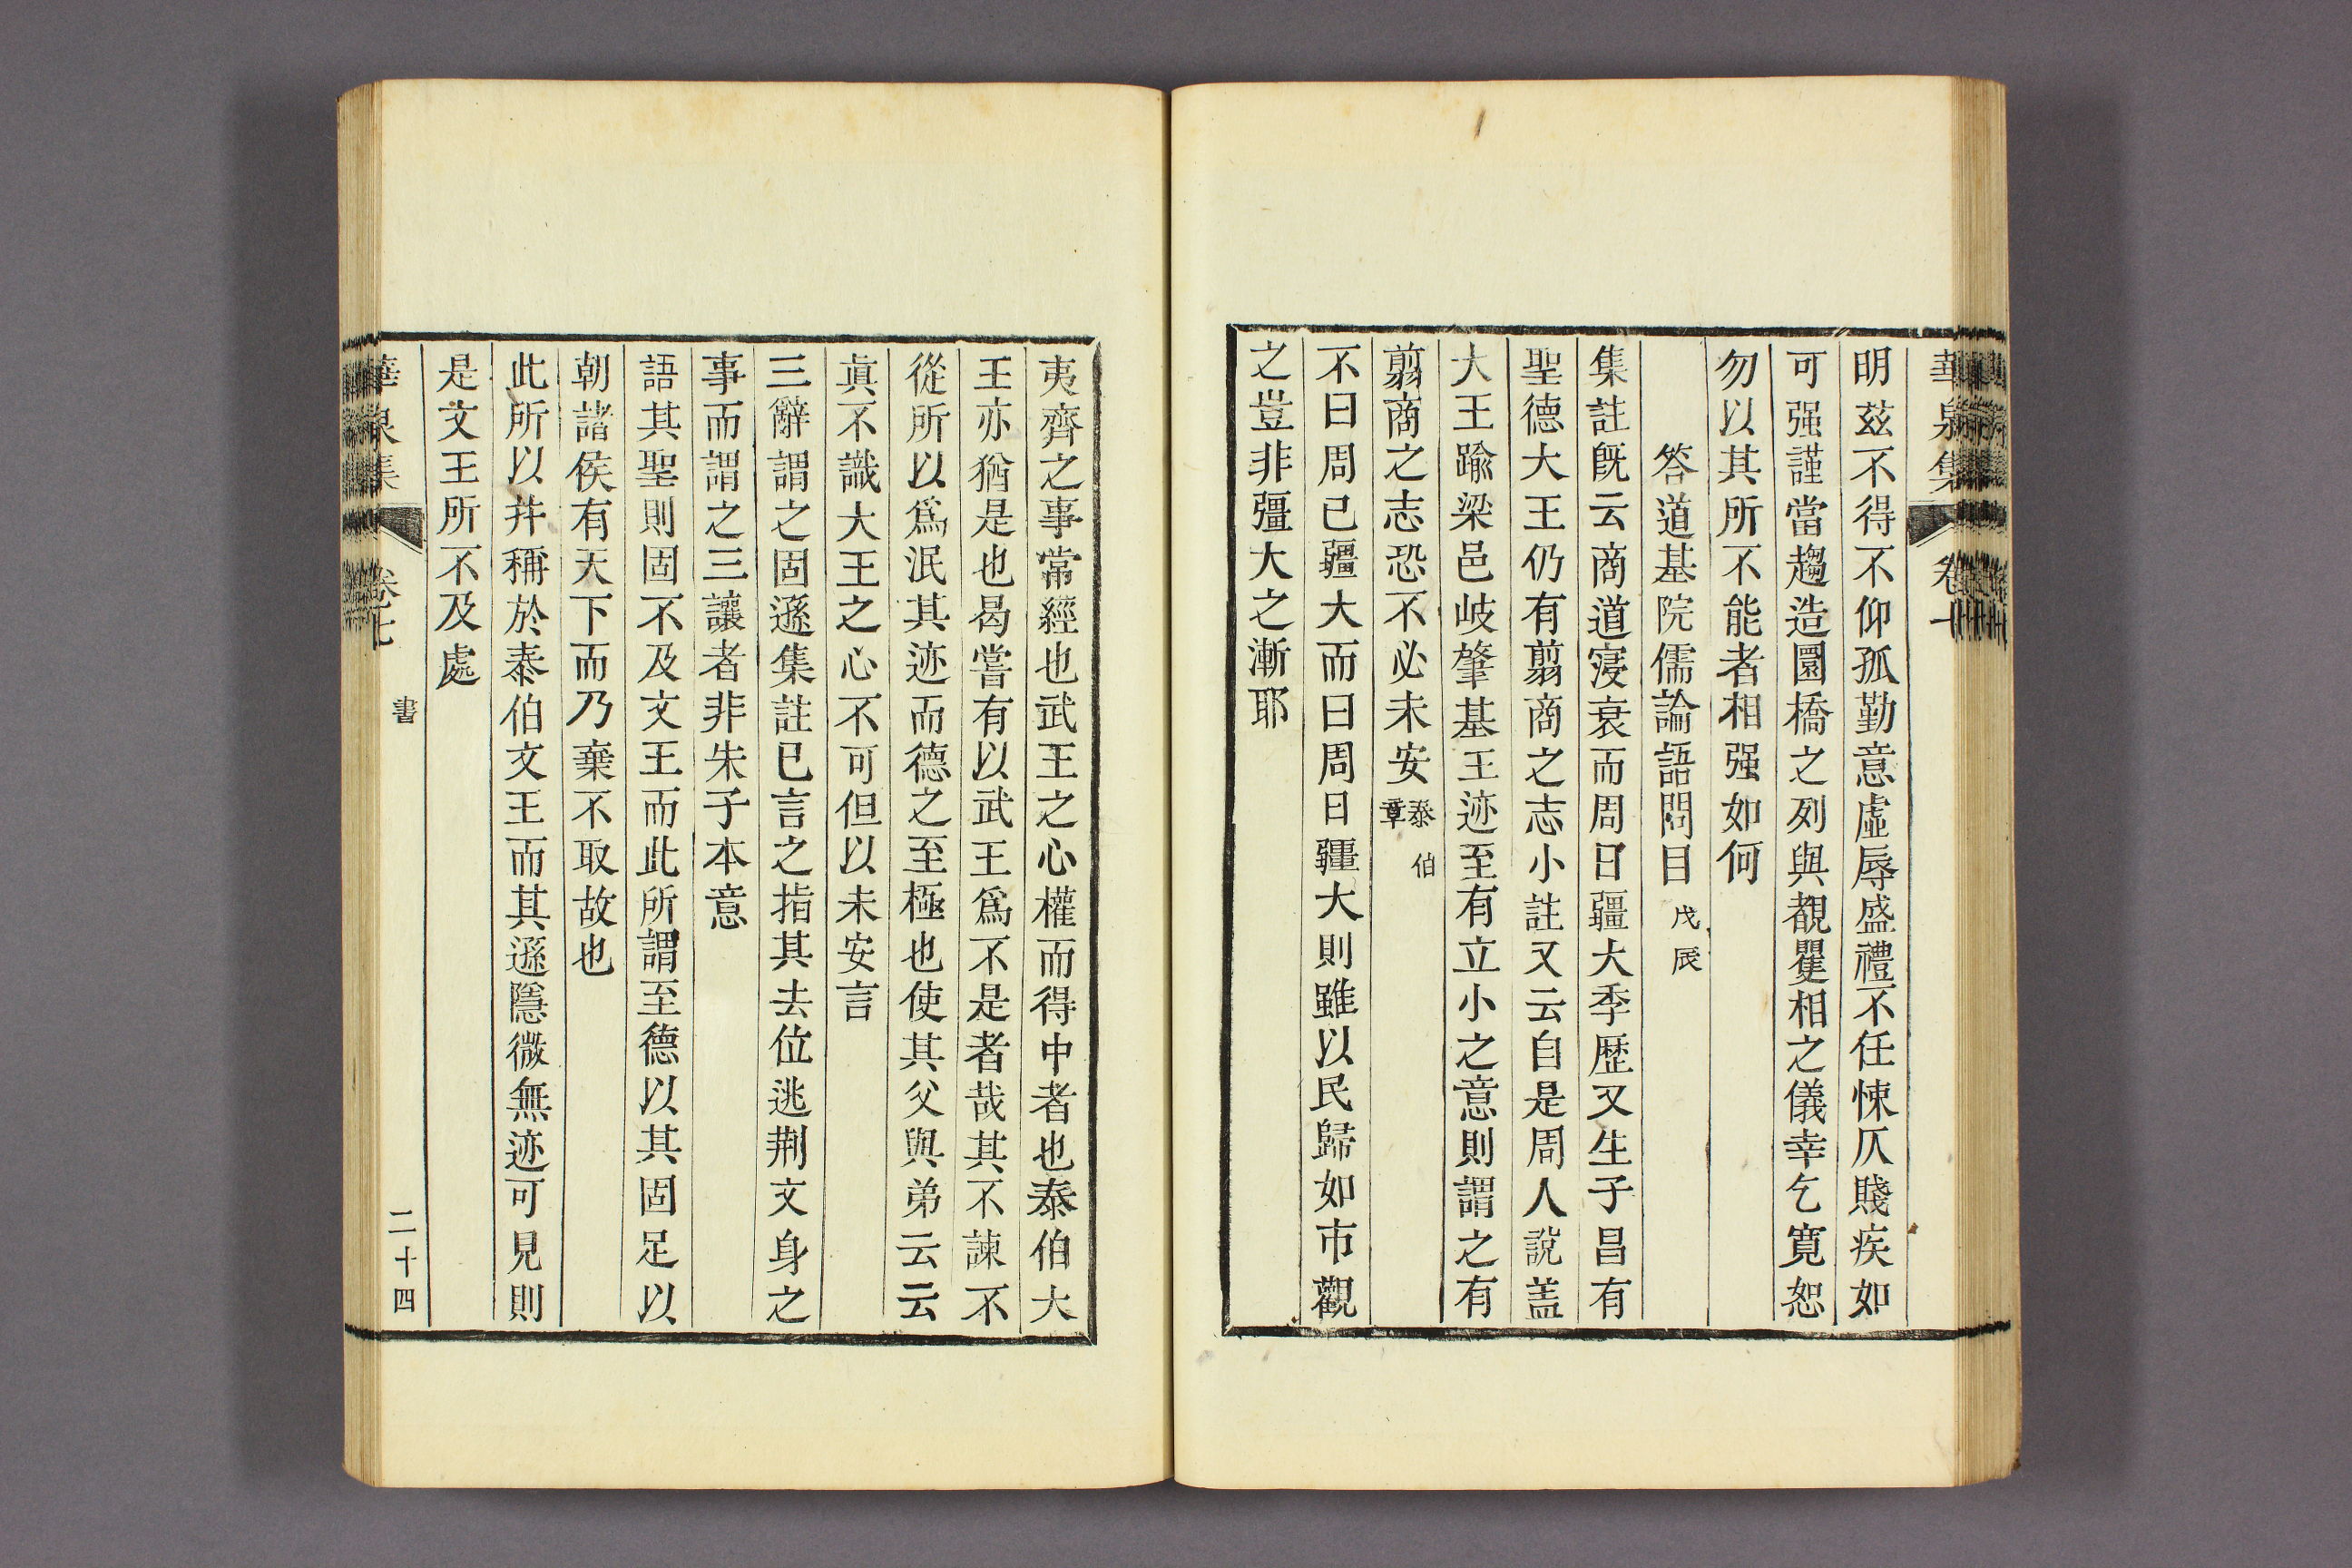 華泉集 卷
明玆不得不仰孤勤意虛辱盛禮不任悚仄賤疾如
可强謹當趨造圜橋之列與覩矍相之儀幸乞寬恕
勿以其所不能者相强如何
答道基院儒論語問目 戊辰
集註旣云商道寖衰而周日疆大季歷又生子昌有
聖德大王仍有翦商之志小註又云自是周人說盖
大王踰梁邑岐肇基王迹至有立小之意則謂之有
翦商之志恐不必未安 泰伯章
不曰周已疆大而曰周日疆大則雖以民歸如市觀
之豈非彊大之漸耶
夷齊之事常經也武王之心權而得中者也泰伯大
王亦猶是也曷嘗有以武王爲不是者哉其不諫不
從所以爲泯其迹而德之至極也使其父與弟云云
眞不識大王之心不可但以未安言
三辭謂之固遜集註已言之指其去位逃荆文身之
事而謂之三讓者非朱子本意
語其聖則固不及文王而此所謂至德以其固足以
朝諸侯有天下而乃棄不取故也
此所以幷稱於泰伯文王而其遜隱微無迹可見則
是文王所不及處
華泉集 卷七 書 二十四